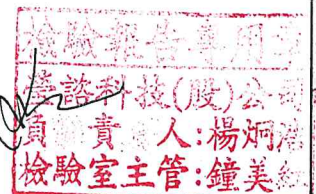 檢驗報告專用章
諾科技(股)公司
負責人:楊炯
檢驗室主管:鐘美